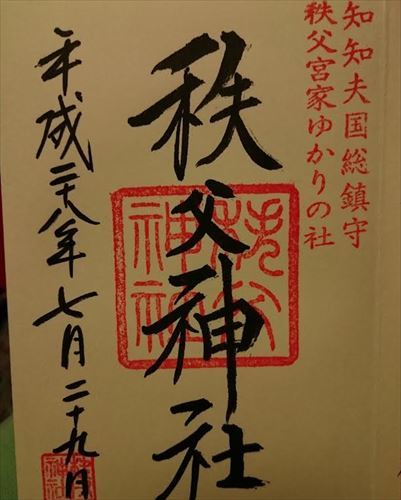 知知夫国総鎮守
秩父宮家ゆかりの社
秩父神社
秩父神社
平成二十八年七月二十九日